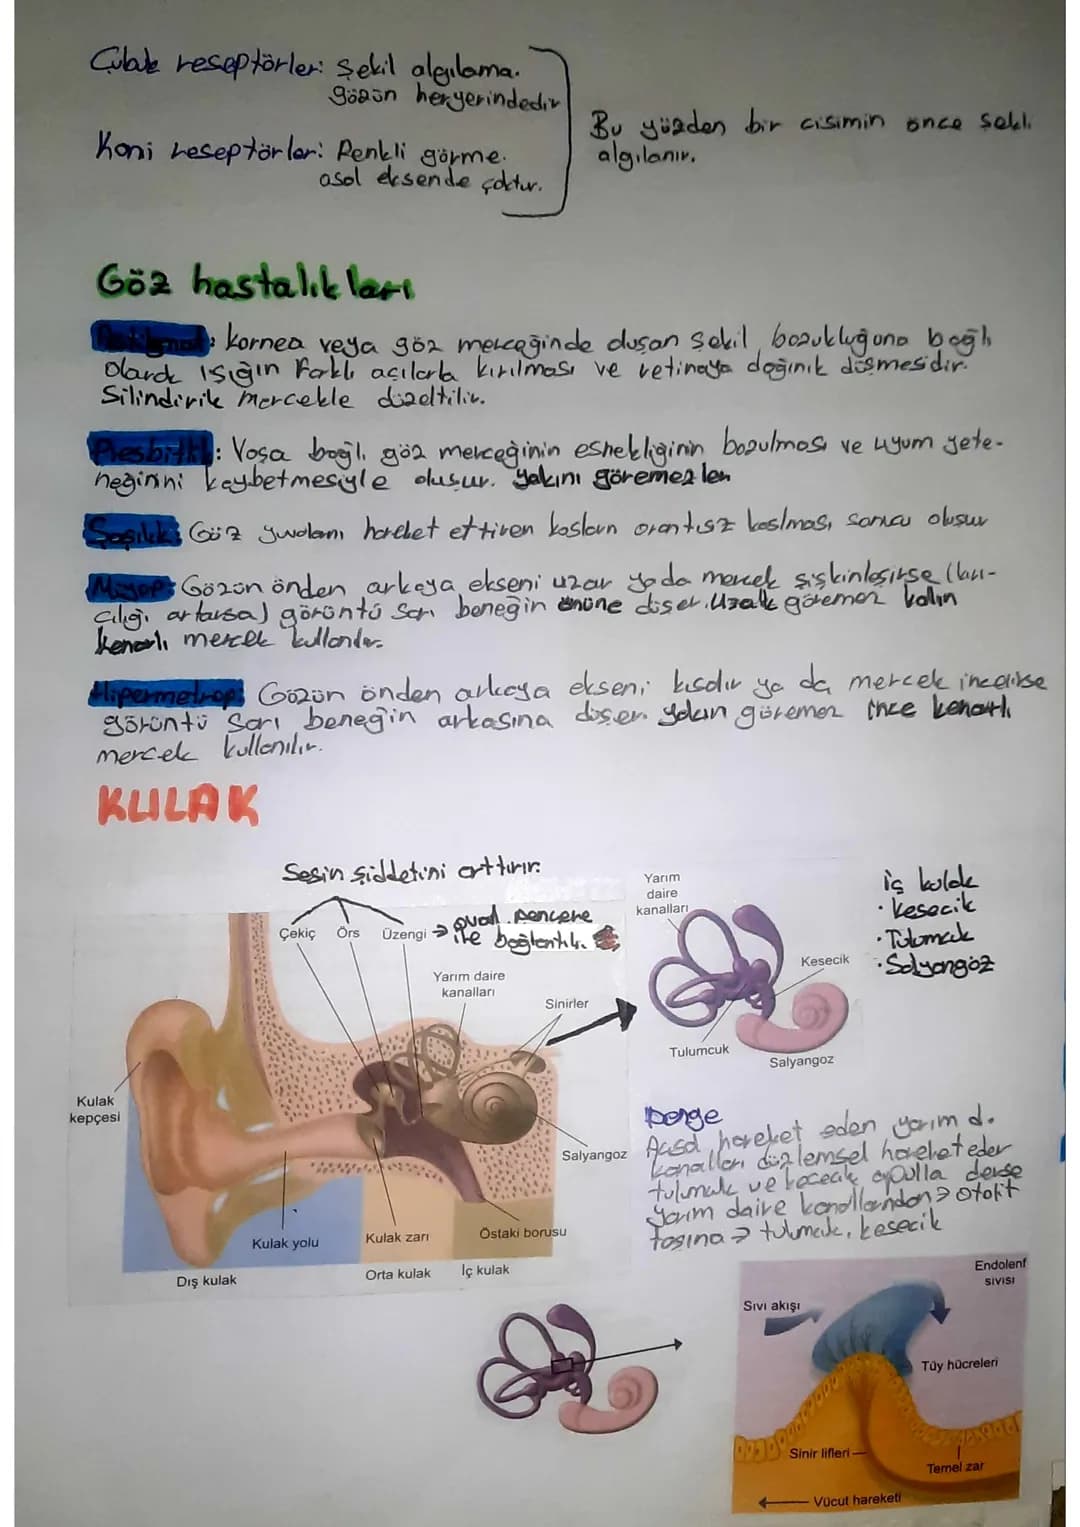 Çubuk reseptörler: Şekil algılama.
gözün heryerindedir
Koni reseptörler: Renkli görme.
asal eksende çoktur.
Bu yüzden bir cisimin önce şekli
algılanır.
Göz hastalıkları
Astigmat: Kornea veya göz merceğinde oluşan şekil bozukluğuna bağlı
olarak ışığın farklı açılarla kırılması ve retinaya dağınık düşmesidir.
Silindirik mercekle düzeltilir.
Presbitlik: Yaşa bağlı göz merceğinin esnekliğinin bozulması ve uyum yete-
neğinini kaybetmesiyle oluşur. Yakını göremezler
Şaşılık: Göz yuvalanı hareket ettiren kasların orantısız kasılması sonucu oluşur
Miyop: Gözün önden arkaya ekseni uzar yada mercek şişkinleşirse (kırı-
cılığı artarsa) görüntü sarı beneğin önüne düşer. Uzak göremez kalın
kenarlı mercek kullanılır.
Hipermetrop: Gözün önden arkaya ekseni kısalır ya da mercek incelirse
görüntü sarı beneğin arkasına düşer. yakın göremez ince kenarlı
mercek kullanılır.
KULAK
Sesin şiddetini arttırır.
Çekiç Örs Üzengi → oval pencere
ile bağlantılı.
Yarım daire
kanalları
Sinirler
Kulak
kepçesi
Salyangoz
Kulak yolu
Kulak zarı
Östaki borusu
Dış kulak
Orta kulak
İç kulak
Yarım
daire
kanalları
Kesecik
Tulumcuk
Salyangoz
iç kulak
• Kesecik
• Tulumcuk
• Salyangöz
Denge
Açısal hareket eden yarım d.
kanalları düzlemsel hareket eder
tulumcuk ve kesecik apulla derse
yarım daire kanallarından → Otolit
taşına → tulumcuk, kesecik
Endolenf
sıvısı
Sıvı akışı
Tüy hücreleri
Sinir lifleri
Temel zar
Vücut hareketi